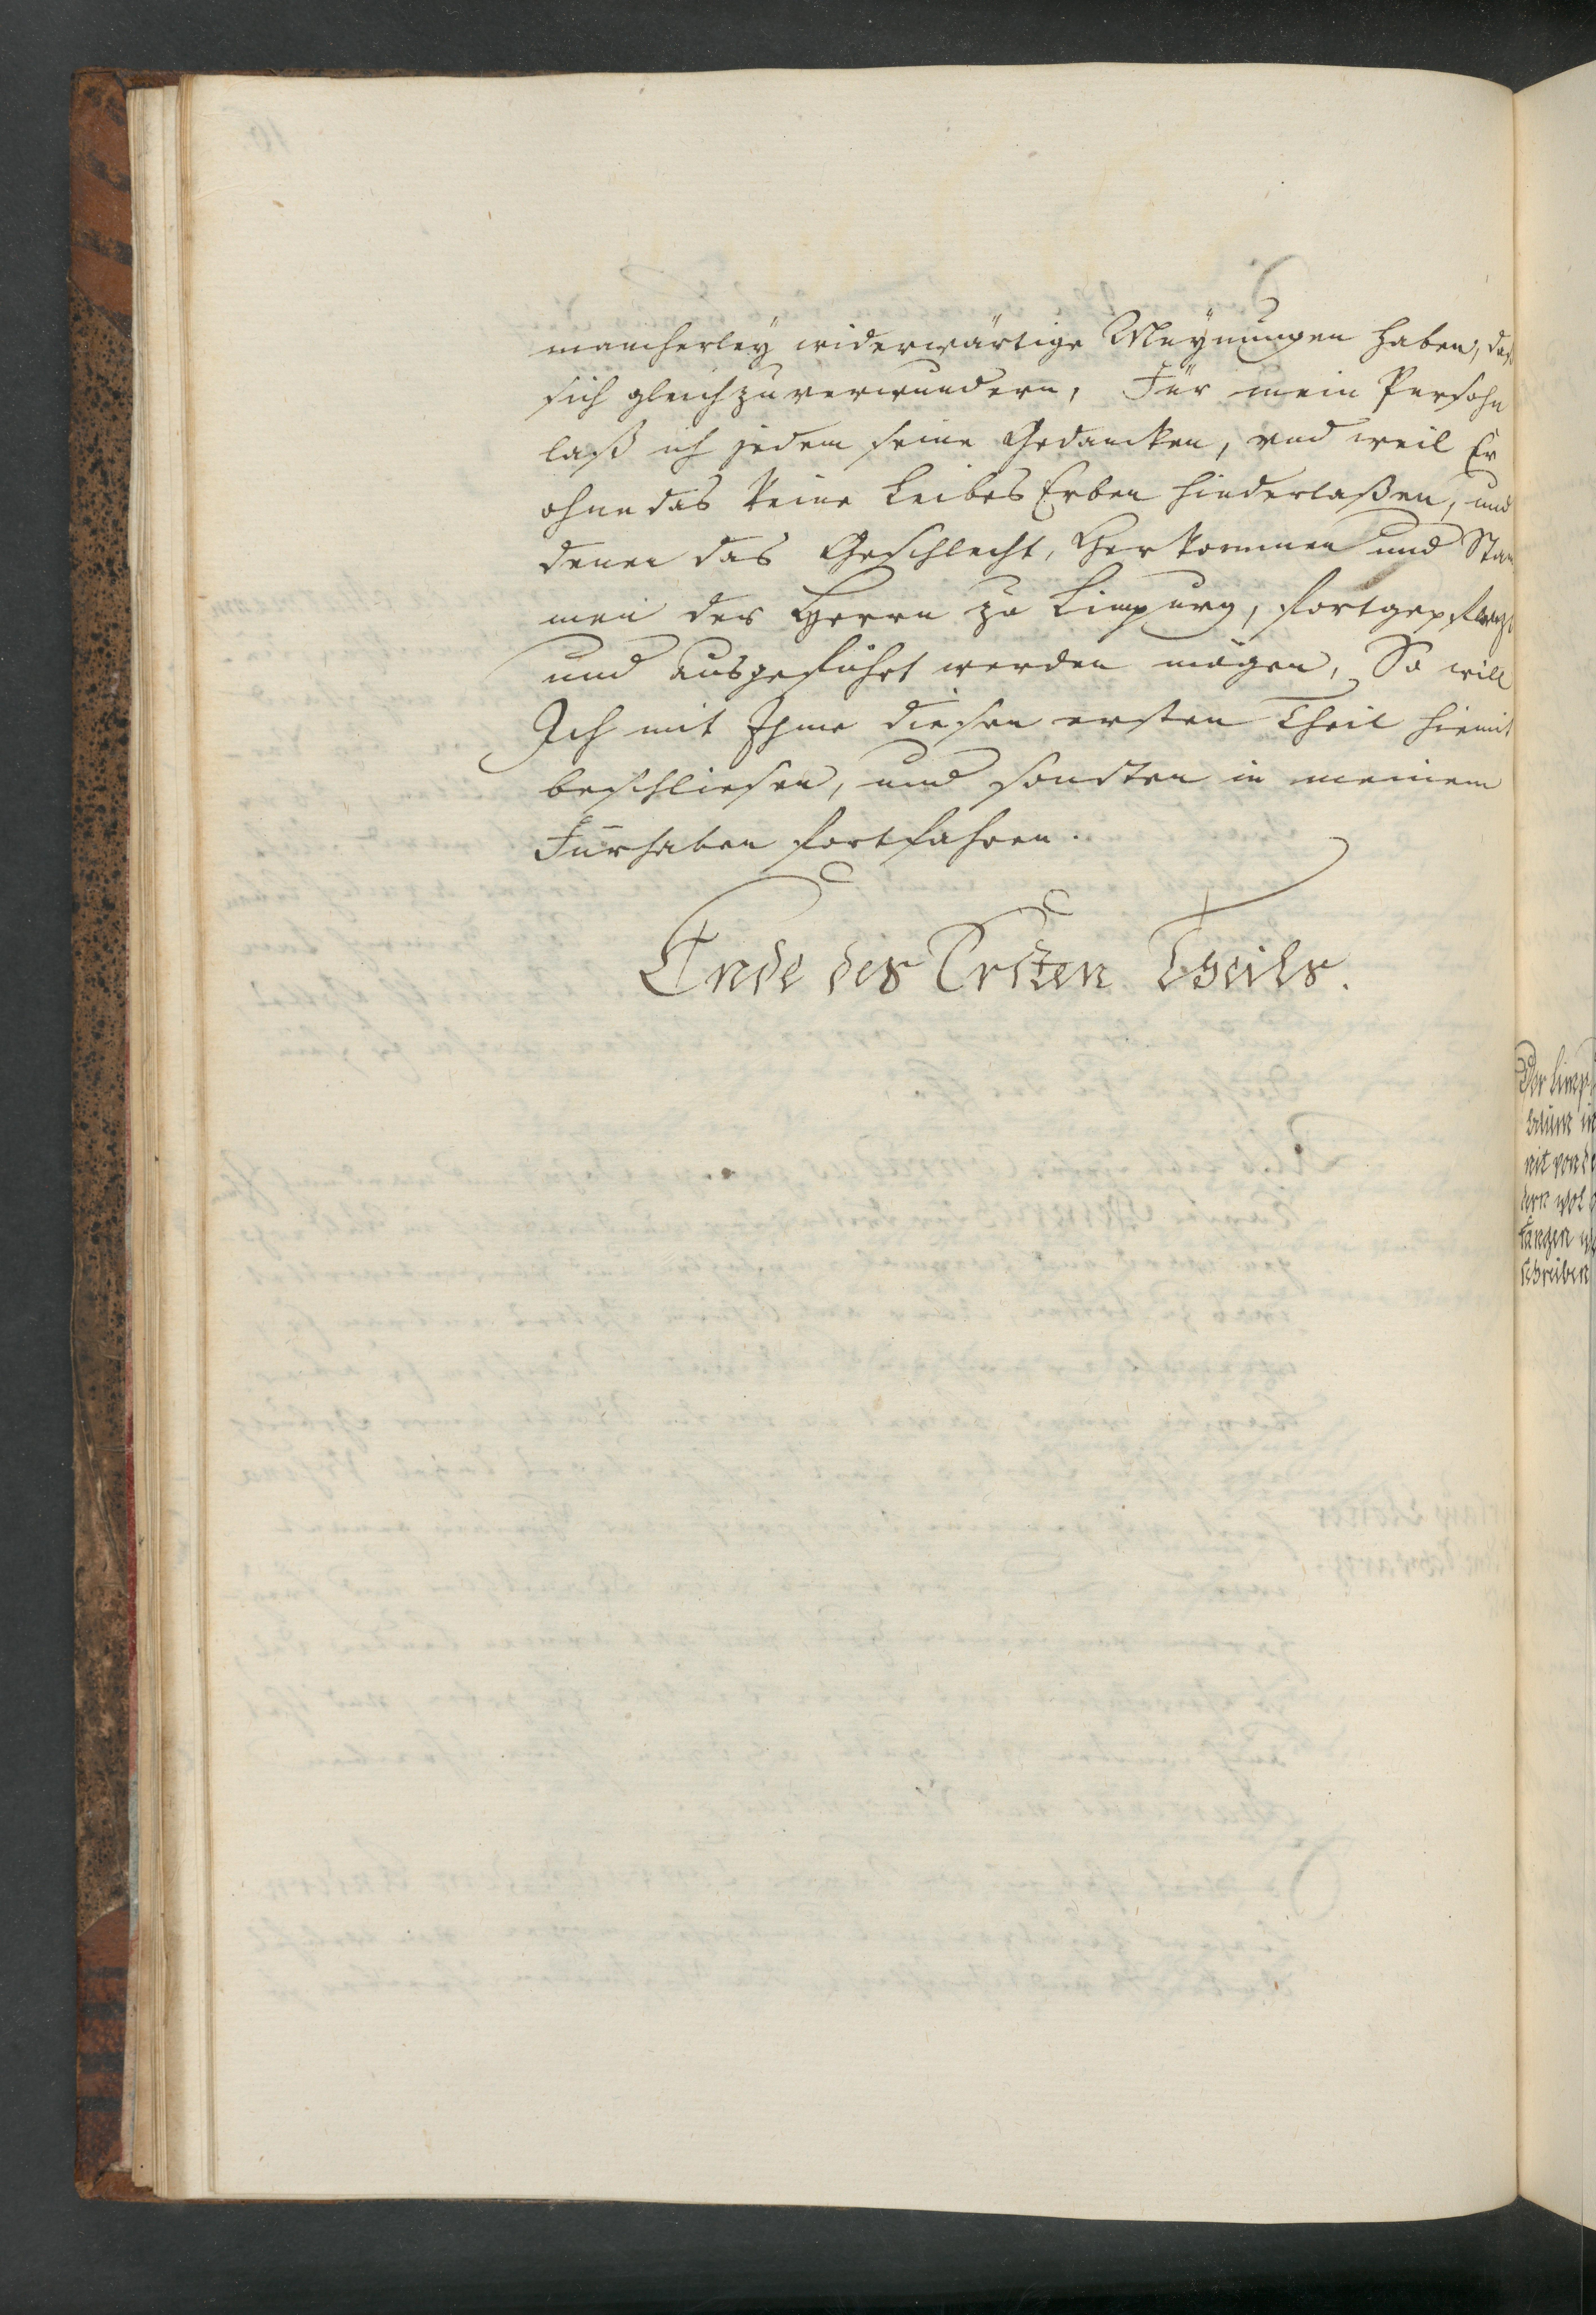 mancherleÿ widerwärtige Meÿnungen haben, das
sich gleich zu verwundern, Für mein Persohn
laß ich jedem seine Gedancken, und weil Er
ohne das keine Leibes Erben hinderlaßen, und
denen das Geschlecht, Herkommen und Stam
men der Herrn zu Limpurg, fortgepflanzt
und ausgeführt werden mögen, So will
Ich mit Ihme diesen ersten Theil hiemit
beschliesen, und sonsten in meinem
Fürhaben fortfahren.
Ende des Ersten Theils.
Der Limp
baum
nit von
dern
fangen
schreiben